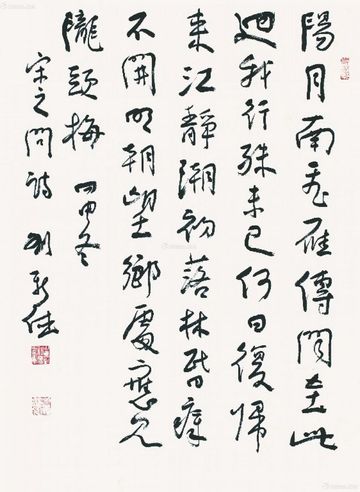 陽月南飛雁傳聞至此
迴我行殊未已何日復歸
來江靜潮初落林昏瘴
不開明朝望鄉處應見
隴頭梅 冬
宋之問詩